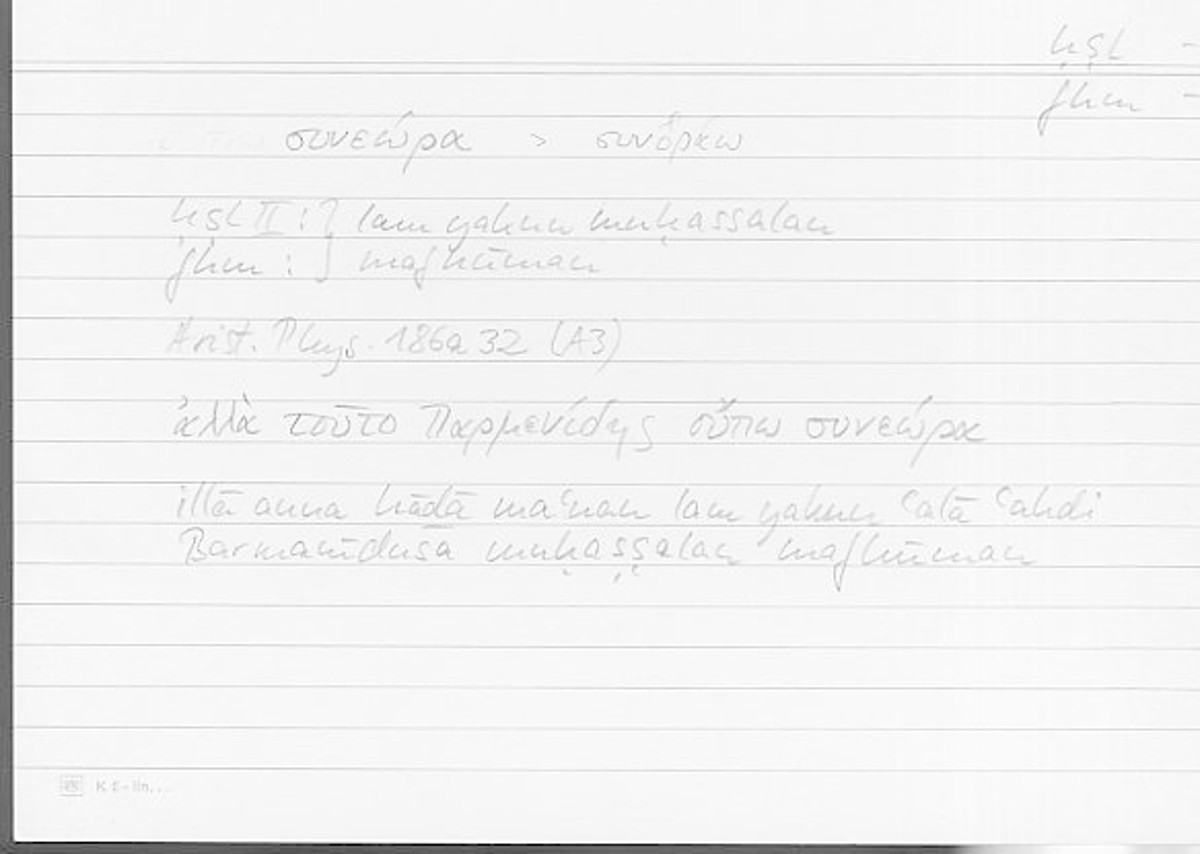 ḥṣl -
fhm -
συνεώρα > συνοράω
ḥṣl II : } lam yakun muḥaṣṣalan
fhm : } mafhūman
Arist. Phys. 186a 32 (A3)
ἀλλὰ τοῦτο Παρμενίδης οὔπω συνεώρα
illā anna hāḏā maʿnan lam yakun ʿalā ʿahdi
Barmanīdusa muḥaṣṣalan mafhūman